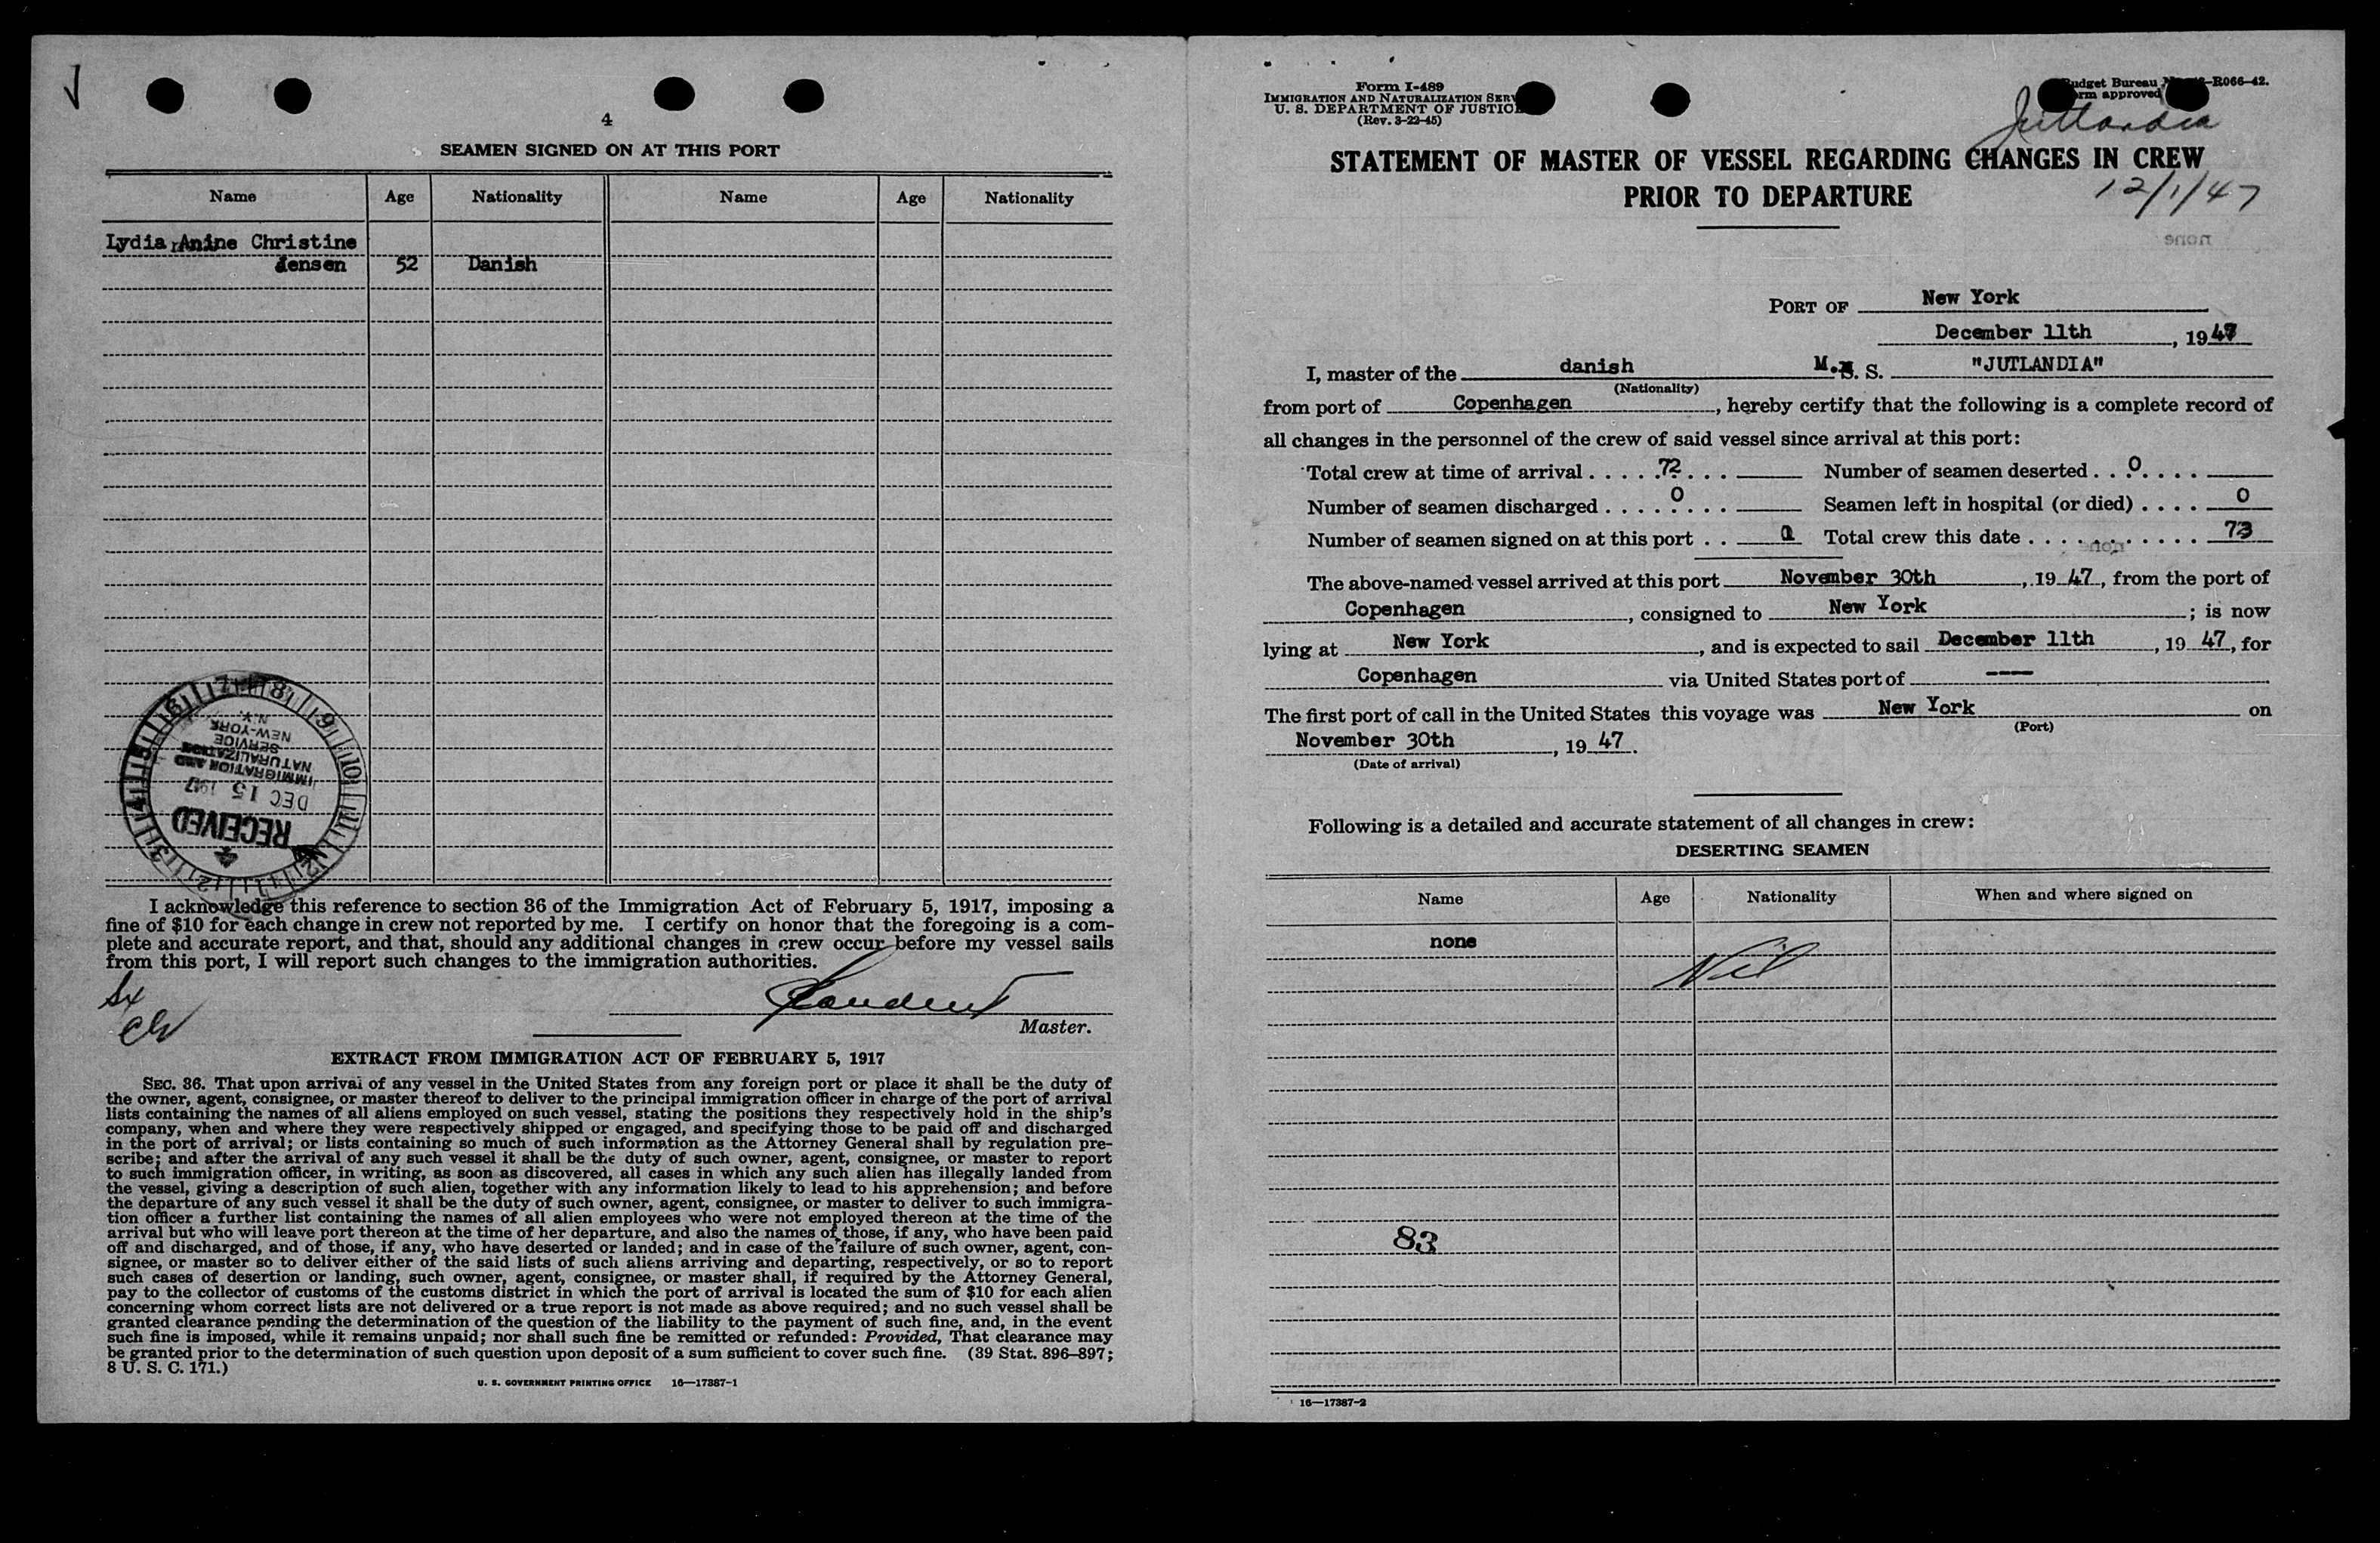 4
SEAMEN SIGNED ON AT THIS PORT
Name Age Nationality Name Age Nationality
Lydia Anine Christine
Jensen 52 Danish
7 8 9 10 11 12 1 2 3 4 5 6
RECEIVED
DEC 15 1947
IMMIGRATION AND
NATURALIZATION
SERVICE
NEW-YORK
N.Y.
I acknowledge this reference to section 36 of the Immigration Act of February 5, 1917, imposing a
fine of $10 for each change in crew not reported by me. I certify on honor that the foregoing is a com-
plete and accurate report, and that, should any additional changes in crew occur before my vessel sails
from this port, I will report such changes to the immigration authorities.
Master.
EXTRACT FROM IMMIGRATION ACT OF FEBRUARY 5, 1917
SEC. 36. That upon arrival of any vessel in the United States from any foreign port or place it shall be the duty of
the owner, agent, consignee, or master thereof to deliver to the principal immigration officer in charge of the port of arrival
lists containing the names of all aliens employed on such vessel, stating the positions they respectively hold in the ship's
company, when and where they were respectively shipped or engaged, and specifying those to be paid off and discharged
in the port of arrival; or lists containing so much of such information as the Attorney General shall by regulation pre-
scribe; and after the arrival of any such vessel it shall be the duty of such owner, agent, consignee, or master to report
to such immigration officer, in writing, as soon as discovered, all cases in which any such alien has illegally landed from
the vessel, giving a description of such alien, together with any information likely to lead to his apprehension; and before
the departure of any such vessel it shall be the duty of such owner, agent, consignee, or master to deliver to such immigra-
tion officer a further list containing the names of all alien employees who were not employed thereon at the time of the
arrival but who will leave port thereon at the time of her departure, and also the names of those, if any, who have been paid
off and discharged, and of those, if any, who have deserted or landed; and in case of the failure of such owner, agent, con-
signee, or master so to deliver either of the said lists of such aliens arriving and departing, respectively, or so to report
such cases of desertion or landing, such owner, agent, consignee, or master shall, if required by the Attorney General,
pay to the collector of customs of the customs district in which the port of arrival is located the sum of $10 for each alien
concerning whom correct lists are not delivered or a true report is not made as above required; and no such vessel shall be
granted clearance pending the determination of the question of the liability to the payment of such fine, and, in the event
such fine is imposed, while it remains unpaid; nor shall such fine be remitted or refunded: Provided, That clearance may
be granted prior to the determination of such question upon deposit of a sum sufficient to cover such fine. (39 Stat. 896–897;
8 U. S. C. 171.)
U. S. GOVERNMENT PRINTING OFFICE 16—17387-1
Form I-489
IMMIGRATION AND NATURALIZATION SERV
U. S. DEPARTMENT OF JUSTICE
(Rev. 3-22-45)
Budget Bureau -R066-42.
Form approved
Jutlandia
STATEMENT OF MASTER OF VESSEL REGARDING CHANGES IN CREW
PRIOR TO DEPARTURE
12/1/47
none
PORT OF New York
December 11th, 1947
I, master of the danish M.S. S. "JUTLANDIA"
(Nationality)
from port of Copenhagen, hereby certify that the following is a complete record of
all changes in the personnel of the crew of said vessel since arrival at this port:
Total crew at time of arrival . . . . . 72 . . . Number of seamen deserted . . 0 . . . .
Number of seamen discharged . . . . 0 . . . . Seamen left in hospital (or died) . . . . 0
Number of seamen signed on at this port . . Total crew this date . . . . . . . . . . . 73
none
The above-named vessel arrived at this port November 30th, 1947, from the port of
Copenhagen, consigned to New York; is now
lying at New York, and is expected to sail December 11th, 1947, for
Copenhagen via United States port of ----
The first port of call in the United States this voyage was New York on
(Port)
November 30th, 1947.
(Date of arrival)
Following is a detailed and accurate statement of all changes in crew:
DESERTING SEAMEN
Name Age Nationality When and where signed on
none
Nil
83
16—17387-2